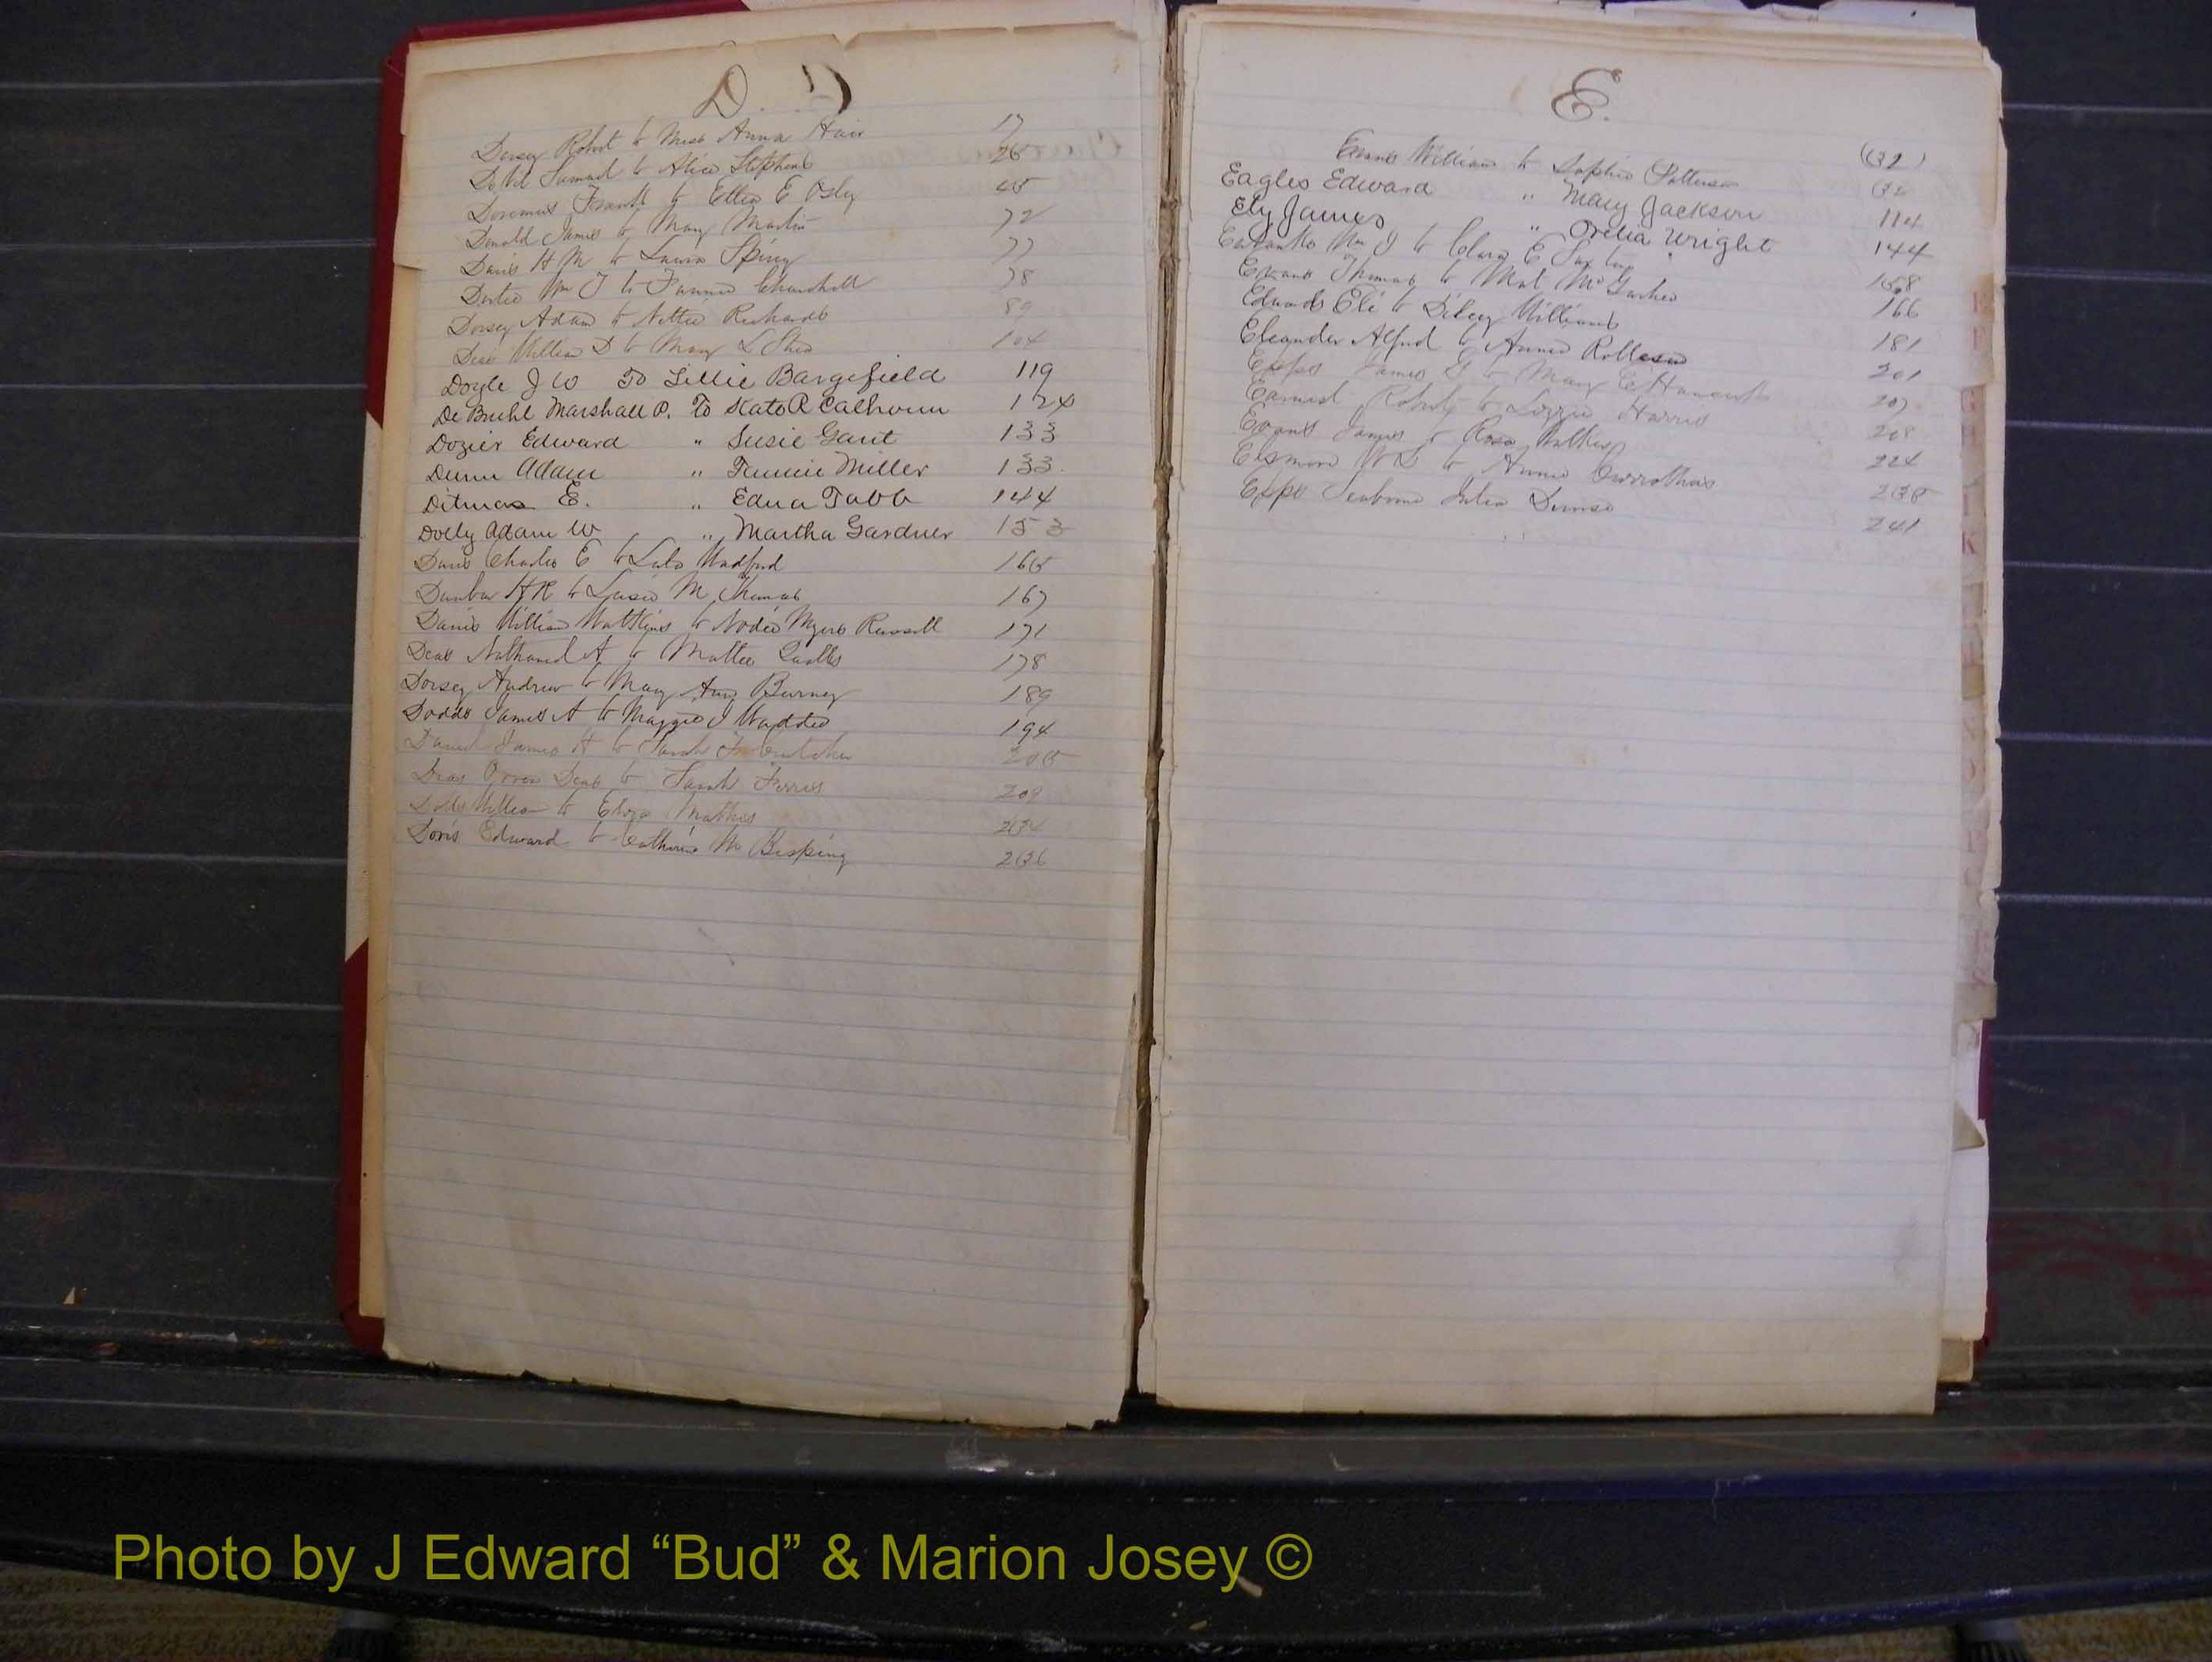 D. D
Dorsey Robert to Miss Anna Hair 17
Samuel to Alice Stephens 25
Doremus Frank to Etta E Osley 45
Donald James to Mary Martin 72
Davis H M to Laura Spiny 77
Wm J to Fannie Churchill 78
Dorsey Adam to Nettie Richards 89
Deas William D to Mary L Shed 104
Doyle J W To Lillie Bargefield 119
De Bruhl Marshall P. To Kate R Calhoun 124
Dozier Edward " Susie Gant 133
Dunn Adam " Fannie Miller 133.
Ditmas E. " Edna Tabb 144
Dolly Adam W " Martha Gardner 153
Davis Charles E to Lula Wadford 165
Dunbar H R to Susie M Thomas 167
Davis William Watkins to Nodie Myers Russell 171
Deas Nathaniel A to Mattie 178
Dorsey Andrew to Mary Ann Burney 189
Dodds James A to Maggie J 194
Daniel James H to Sarah 205
Deas Orren Deas to Sarah Ferris 209
William to Eliza Mathis 234
Doris Edward to Catherine M Bisping 236
E.
Evans William to Sophie Patterson (32)
Eagles Edward " Mary Jackson 32
Ely James " Orelia Wright 114
Eubanks Wm J to Clara E 144
Evans Thomas to 158
Edwards Eli to Dilcey Williams 166
Eleander Alfred to Annie 181
Epps James G to Mary C 201
Earnest Robert to Lizzie Harris 207
Evans James to Rosa Watkins 208
W S to Annie 224
Epps Seaborne Julia 235
241
Photo by J Edward “Bud” & Marion Josey ©